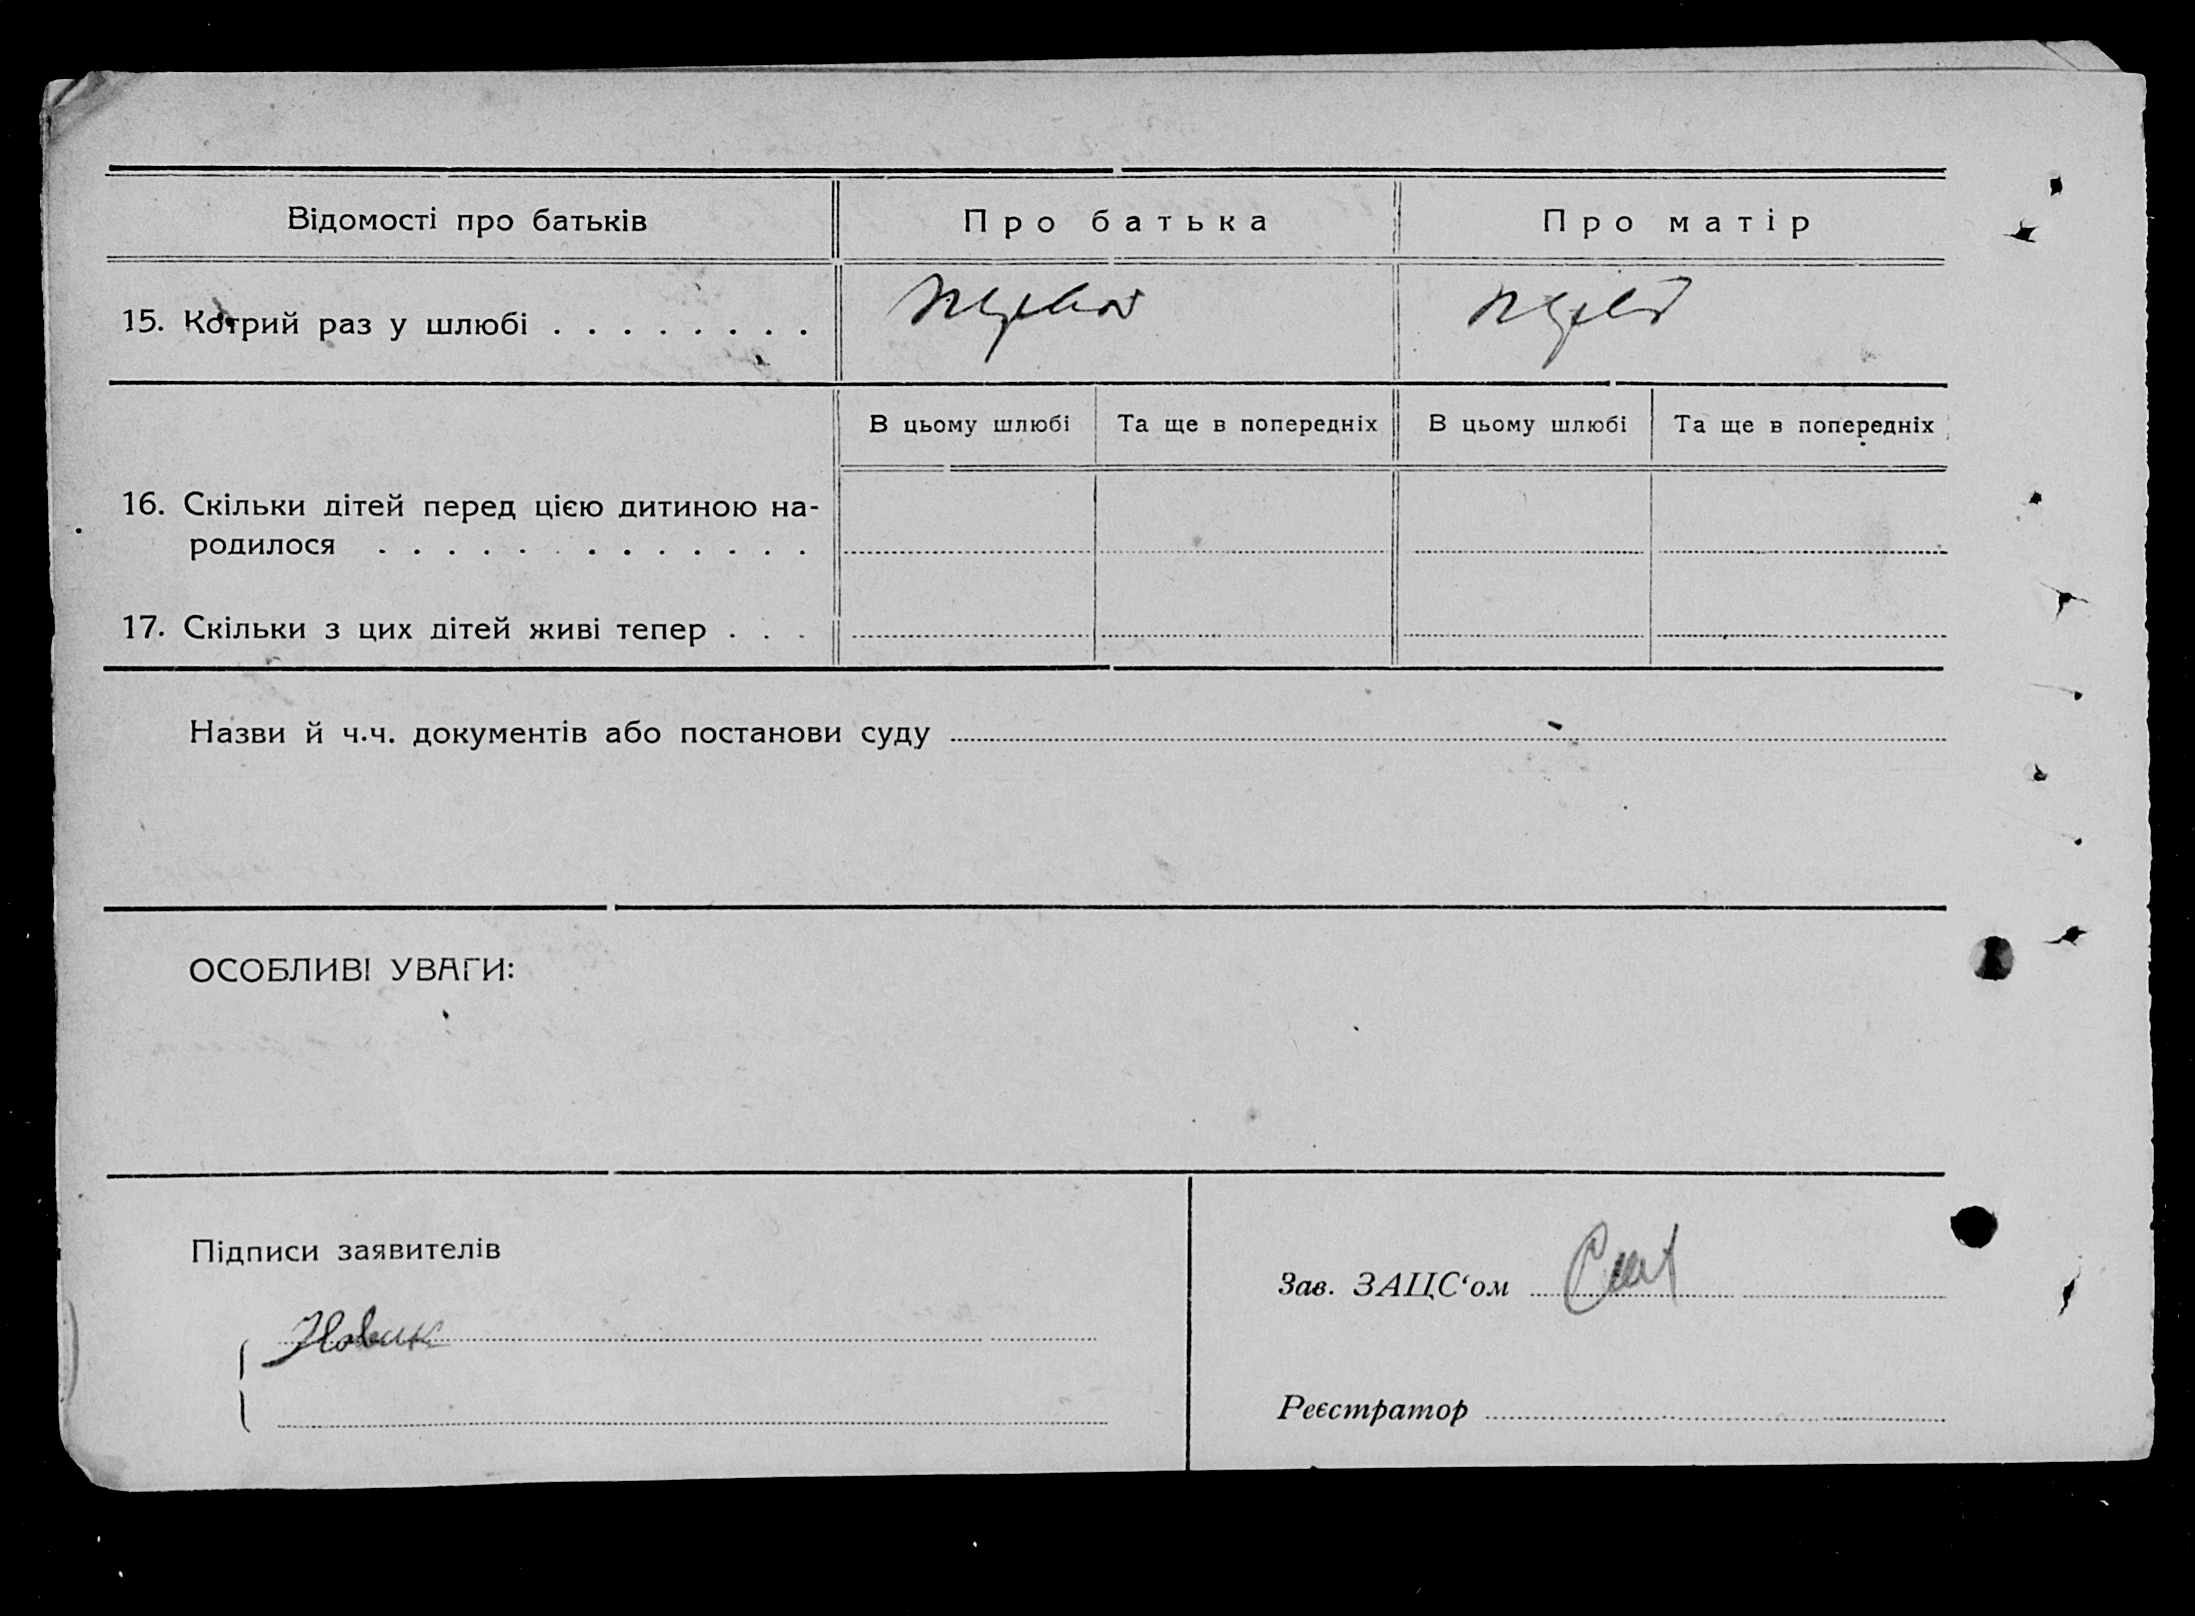 Відомості про батьків
Про батька
Про матір
15. Котрий раз у шлюбі . . . . . . . .
В цьому шлюбі
Та ще в попередніх
В цьому шлюбі
Та ще в попередніх
16. Скільки дітей перед цією дитиною на-
родилося . . . . . . . . . . . . .
17. Скільки з цих дітей живі тепер . . .
Назви й ч.ч. документів або постанови суду
ОСОБЛИВІ УВАГИ:
Підписи заявителів
Зав. ЗАЦС‘ом
Новик
Реєстратор